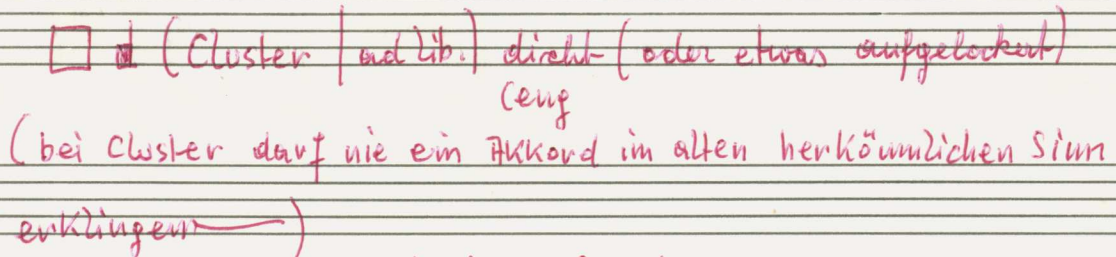 (Cluster | ad lib.) dicht (oder etwas aufgelockert)
(eng
(bei Cluster darf nie ein Akkord im alten herkömmlichen Sinn
erklingen)